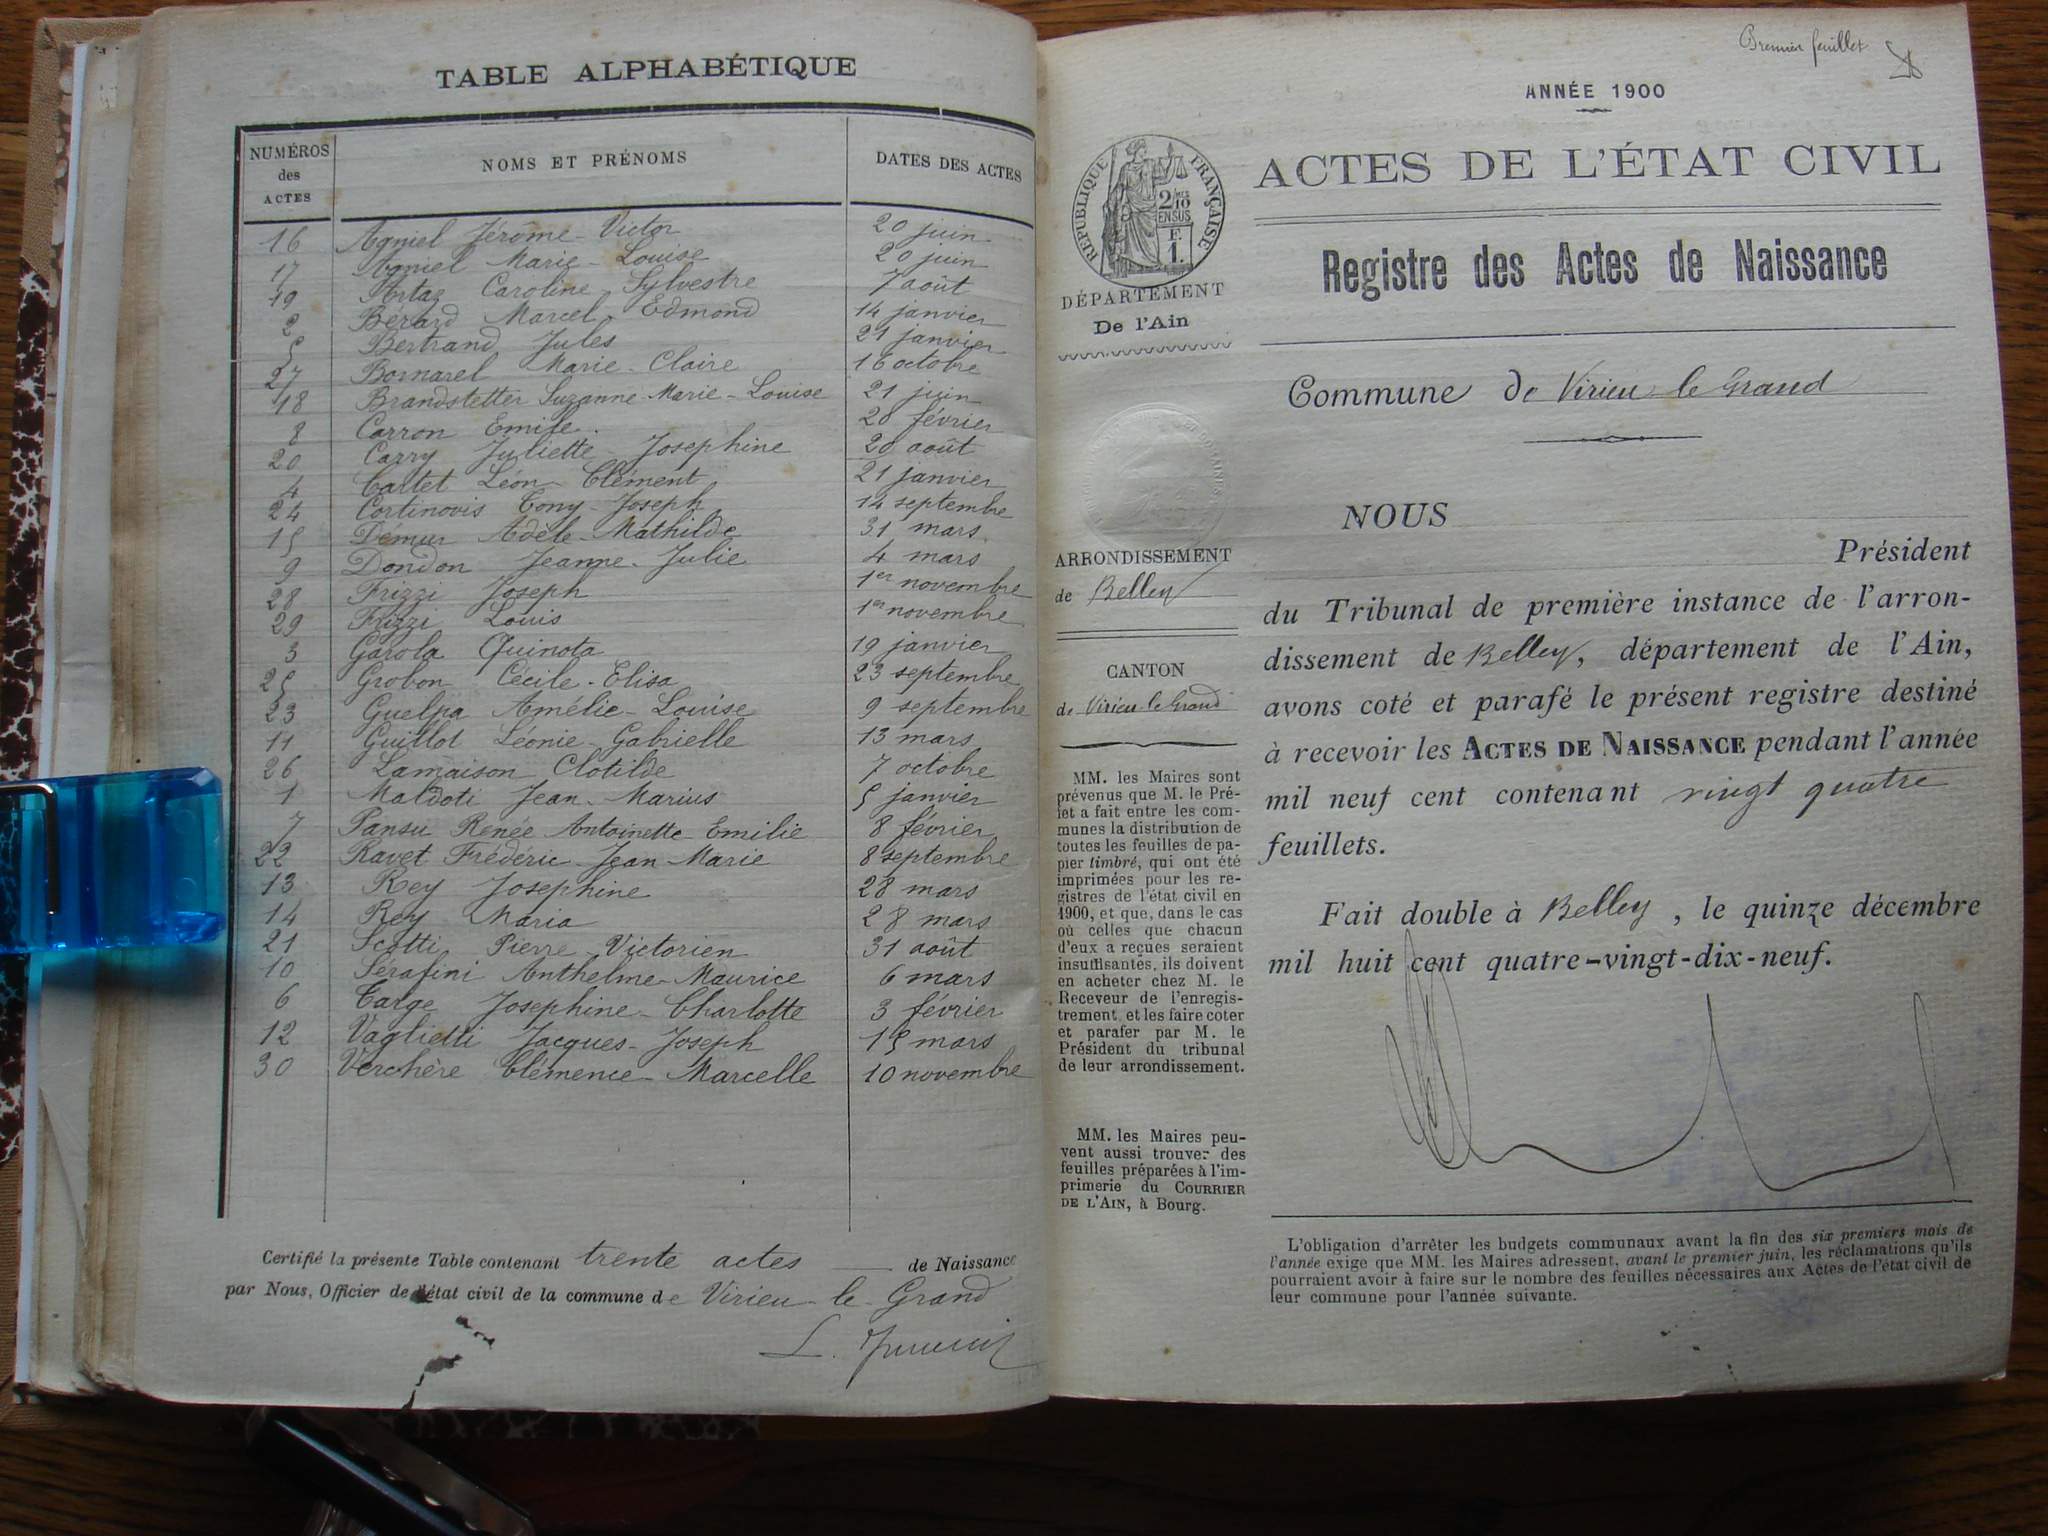 TABLE ALPHABÉTIQUE
NUMÉROS des ACTES NOMS ET PRÉNOMS DATES DES ACTES
16 Agniel Jérome-Victor 20 juin
17 Agniel Marie-Louise 20 juin
19 Artaz Caroline-Sylvestre 7 août
2 Bérard Marcel-Edmond 14 janvier
5 Bertrand Jules 21 janvier
27 Bornarel Marie-Claire 16 octobre
18 Brandstetter Suzanne-Marie-Louise 21 juin
8 Carron Emile. 20 février
20 Carry Juliette-Josephine 20 août
4 Cattet Léon-Clément 21 janvier
24 Cortinovis Tony-Joseph 14 septembre
15 Démur Adèle-Mathilde 31 mars
9 Dondon Jeanne-Julie 4 mars
28 Frizzi Joseph 1er novembre
29 Frizzi Louis 1er novembre
3 Garola Quinota 19 janvier
25 Grobon Cécile-Elisa 23 septembre
23 Guelpa Amélie-Louise 9 septembre
11 Guillot Léonie-Gabrielle 13 mars
26 Lamaison Clotilde 7 octobre
1 Maldoti Jean-Marius 5 janvier
7 Pansu Renée Antoinette Emilie 8 février
22 Ravet Frédéric-Jean-Marie 8 septembre
13 Rey Josephine 28 mars
14 Rey Maria 28 mars
21 Scotti Pierre-Victorien 31 août
10 Sérafini Anthelme-Maurice 6 mars
6 Targe Josephine-Charlotte 3 février
12 Vaglietti Jacques-Joseph 15 mars
30 Verchère Clémence-Marcelle 10 novembre
Certifié la présente Table contenant trente actes de Naissance
par Nous, Officier de l'état civil de la commune de Virieu-le-Grand
L.
Premier feuillet
ANNÉE 1900
RÉPUBLIQUE FRANÇAISE
2/10 EN SUS
F. 1.
DÉPARTEMENT
De l'Ain
ARRONDISSEMENT
de Belley
CANTON
de Virieu-le-Grand
MM. les Maires sont
prévenus que M. le Pré-
fet a fait entre les com-
munes la distribution de
toutes les feuilles de pa-
pier timbré, qui ont été
imprimées pour les re-
gistres de l'état civil en
1900, et que, dans le cas
où celles que chacun
d'eux a reçues seraient
insuffisantes, ils doivent
en acheter chez M. le
Receveur de l'enregis-
trement, et les faire coter
et parafer par M. le
Président du tribunal
de leur arrondissement.
MM. les Maires peu-
vent aussi trouver des
feuilles préparées à l'im-
primerie du COURRIER
DE L'AIN, à Bourg.
ACTES DE L'ÉTAT CIVIL
Registre des Actes de Naissance
Commune de Virieu-le-Grand
NOUS
Président
du Tribunal de première instance de l'arron-
dissement de Belley, département de l'Ain,
avons coté et parafé le présent registre destiné
à recevoir les ACTES DE NAISSANCE pendant l'année
mil neuf cent contenant vingt quatre
feuillets.
Fait double à Belley, le quinze décembre
mil huit cent quatre-vingt-dix-neuf.
L'obligation d'arrêter les budgets communaux avant la fin des six premiers mois de
l'année exige que MM. les Maires adressent, avant le premier juin, les réclamations qu'ils
pourraient avoir à faire sur le nombre des feuilles nécessaires aux Actes de l'état civil de
leur commune pour l'année suivante.